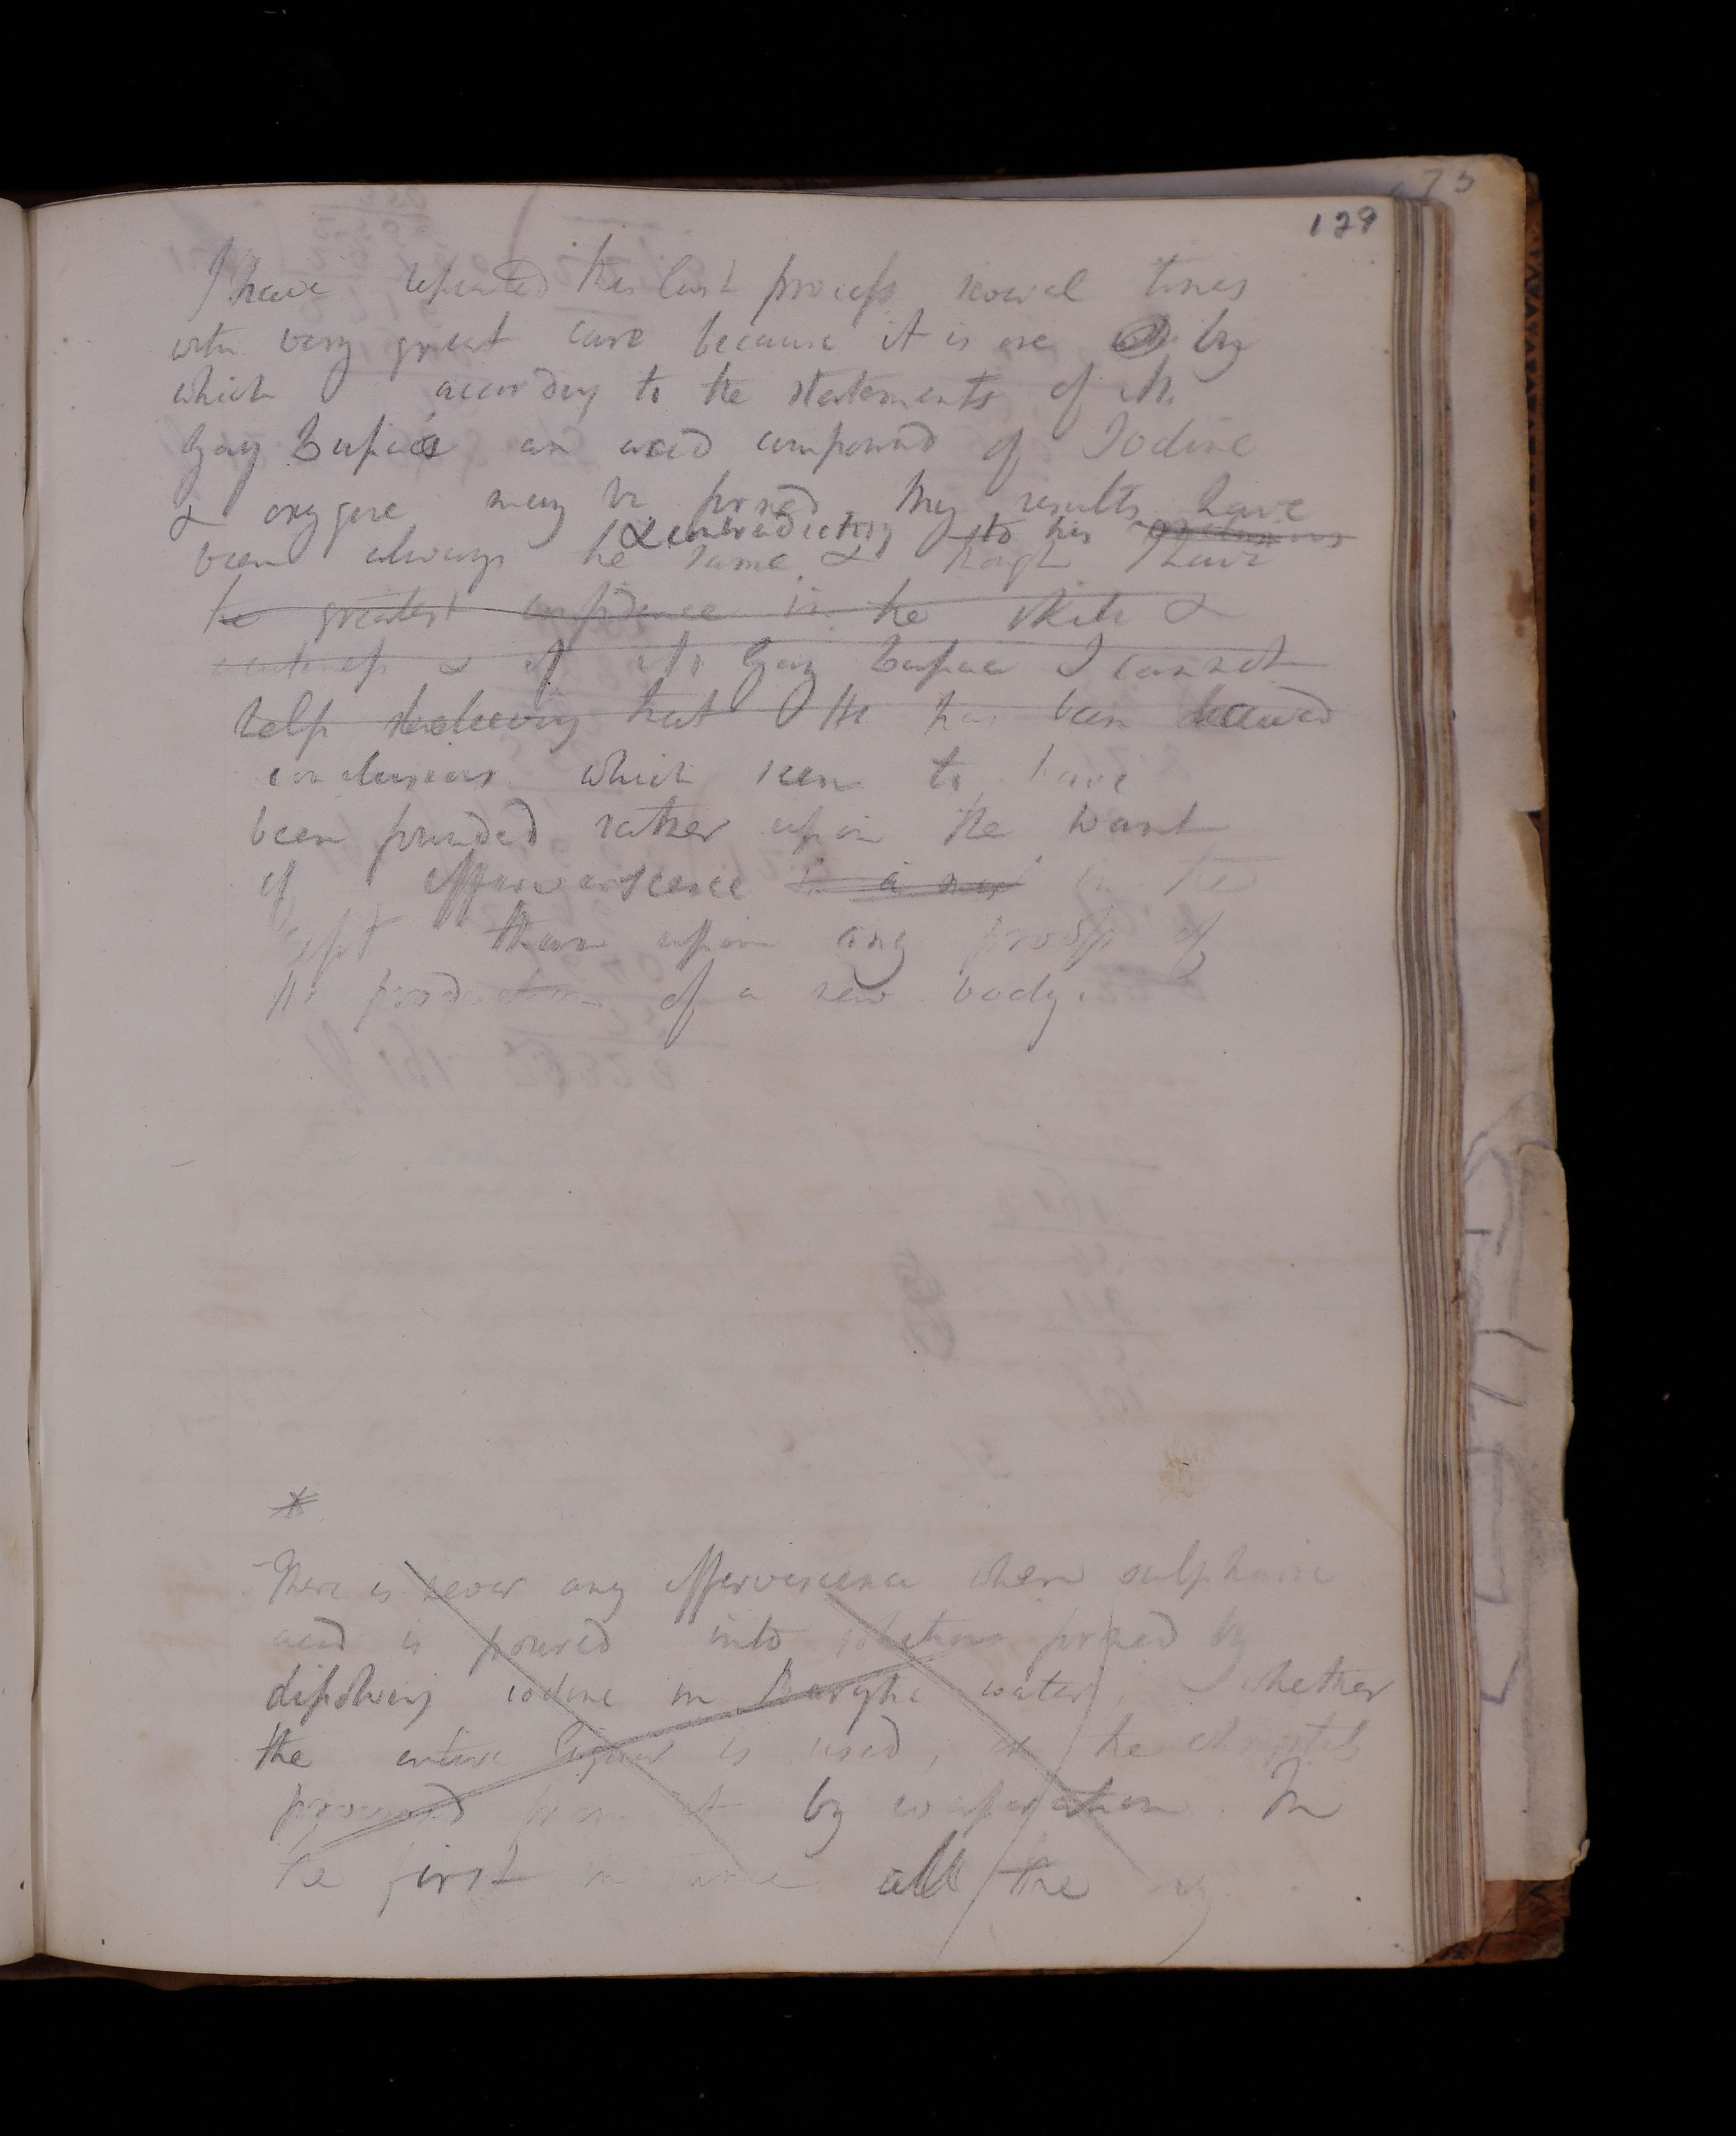 129
I have repeated this last process several times
with very great care because it is one by
which according to the statements of M.
Gay Lussac an acid compound of Iodine
& oxygene may be formed. My results have
& contradictory to his conclusions
been always the same & though I have
the greatest confidence in the skill &
& of M. Gay Lussac I cannot
help believing that He has been deceived
conclusions which seem to have
been founded rather upon the want
of effervescence in a in the
than upon any proofs of
the production of a new body.
*
There is never any effervescence when sulphuric
acid is poured into solutions formed by
dissolving iodine in Barytic water, whether
the entire liquor is used, or the chrystals
procured from it by evaporation. In
the first instance all the